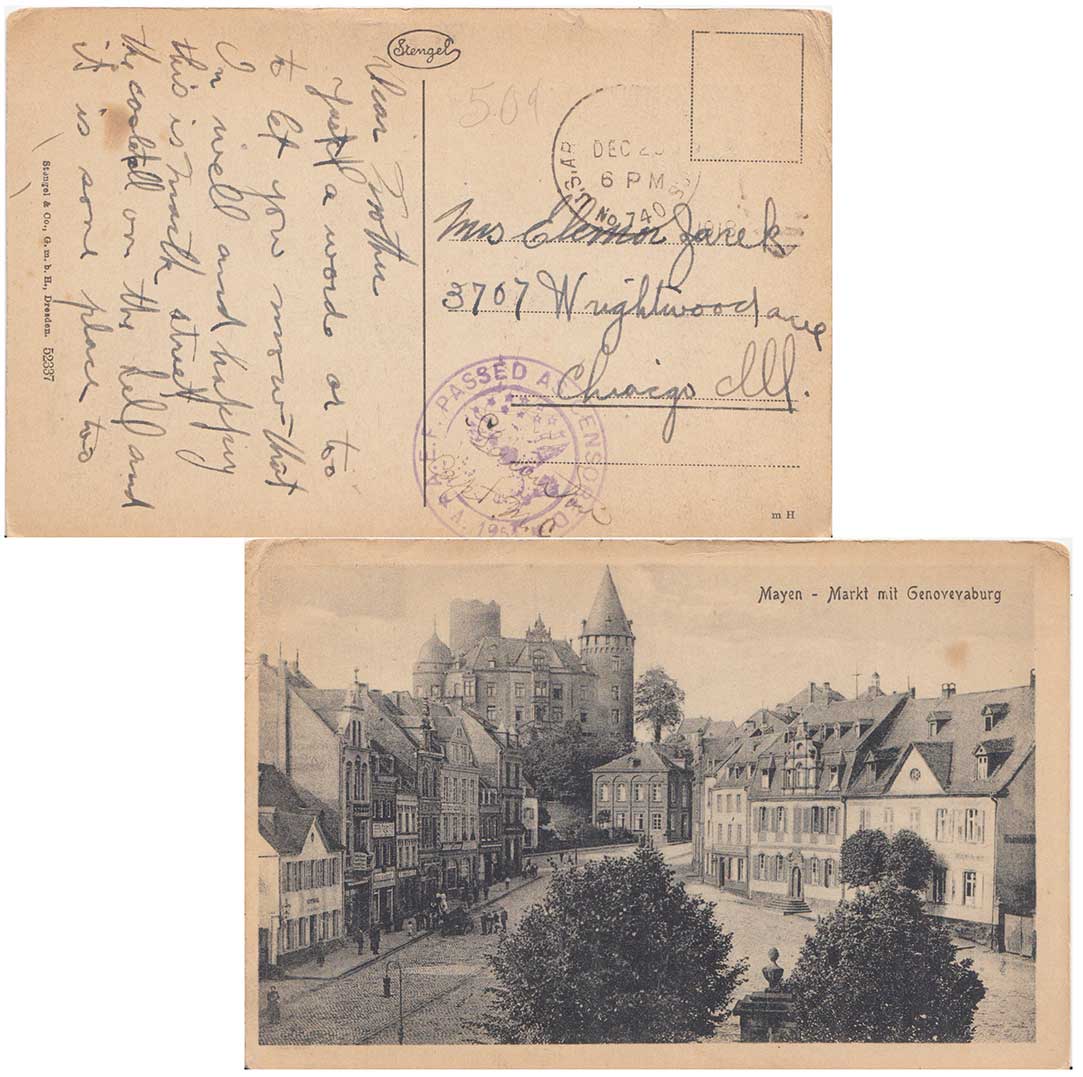 Stengel
Dear Mother
Just a word or too
to let you now that
I'm well and happy
this is markt street
the castell on the hell and
it is some place too
Stengel & Co., G. m. b. H., Dresden. 52337
509
DEC 2
6 PM
U.S. AR
No. 740
Mrs Elenor Janek
3707 Wrightwood ave
Chicago Ill.
A.E.F. PASSED AS CENSORED
A. 195
m H
Mayen - Markt mit Genovevaburg